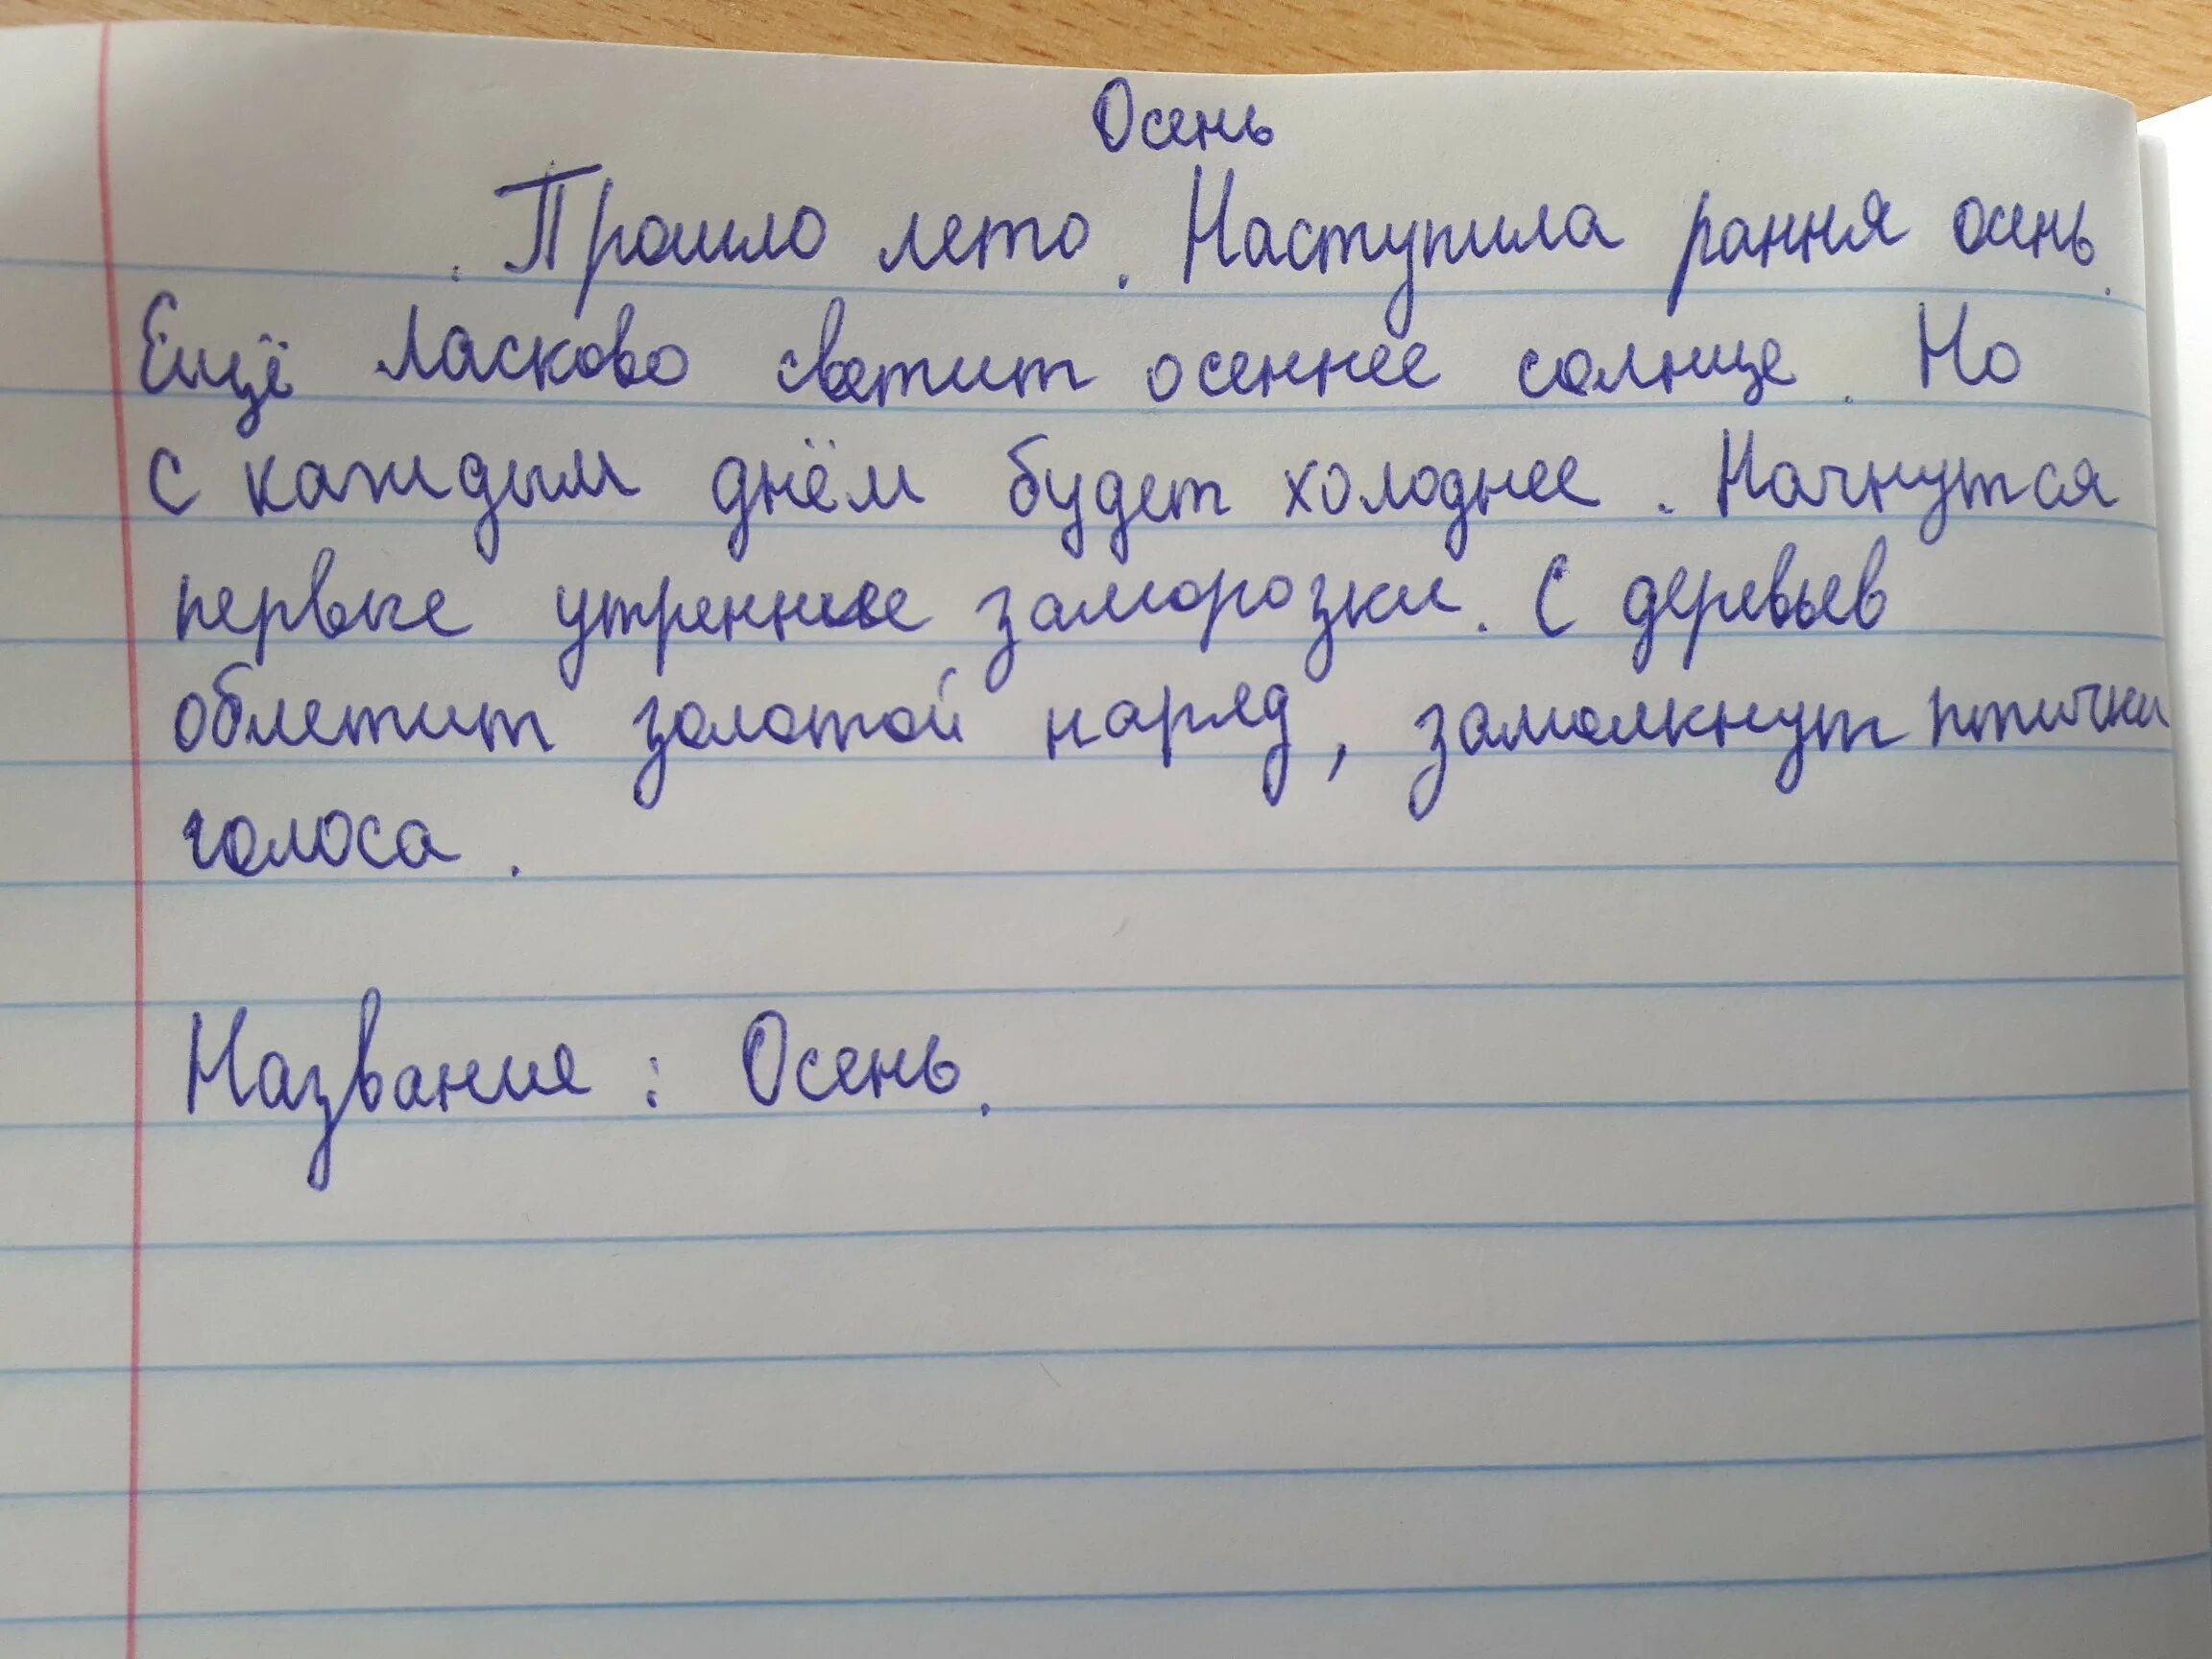 Осень
Прошло лето. Наступила рання осень.
Ещё ласково светит осеннее солнце. Но
с каждым днём будет холоднее. Начнутся
первые утренние заморозки. С деревьев
облетит золотой наряд, замолкнут птички
голоса.
Название: Осень.